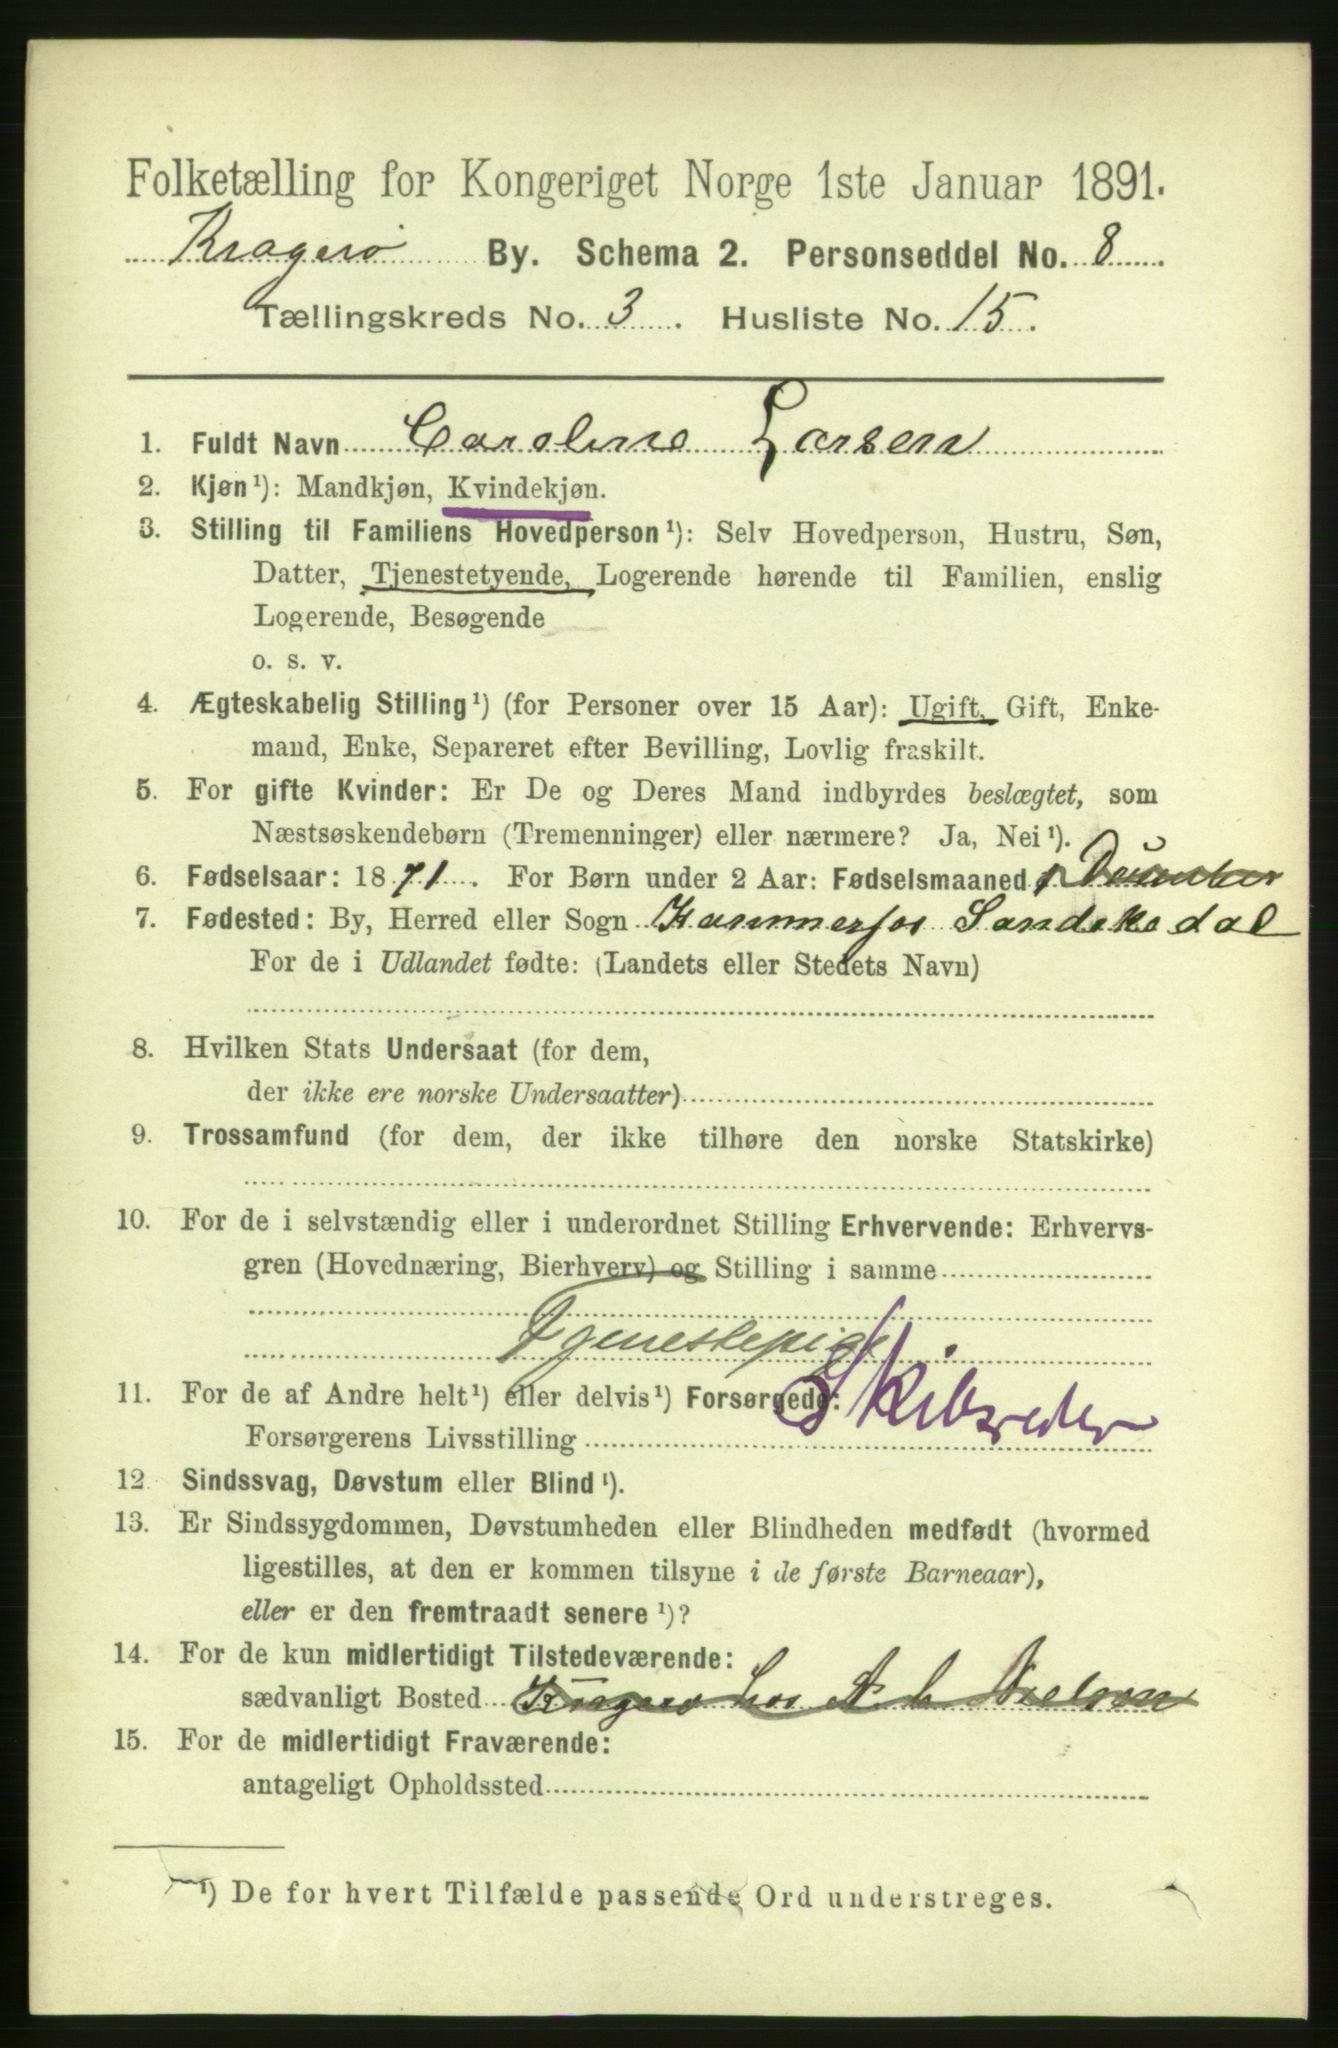 Folketælling for Kongeriget Norge 1ste Januar 1891.
Kragerø By. Schema 2. Personseddel No. 8
Tællingskreds No. 3. Husliste No. 15.
1. Fuldt Navn Caroline Larsen
2. Kjøn¹): Mandkjøn, Kvindekjøn.
3. Stilling til Familiens Hovedperson¹): Selv Hovedperson, Hustru, Søn,
Datter, Tjenestetyende, Logerende hørende til Familien, enslig
Logerende, Besøgende
o. s. v.
4. Ægteskabelig Stilling¹) (for Personer over 15 Aar): Ugift, Gift, Enke-
mand, Enke, Separeret efter Bevilling, Lovlig fraskilt.
5. For gifte Kvinder: Er De og Deres Mand indbyrdes beslægtet, som
Næstsøskendebørn (Tremenninger) eller nærmere? Ja, Nei¹).
6. Fødselsaar: 1871. For Børn under 2 Aar: Fødselsmaaned
7. Fødested: By, Herred eller Sogn Kammerfos Sandøkedal
For de i Udlandet fødte: (Landets eller Stedets Navn)
8. Hvilken Stats Undersaat (for dem,
der ikke ere norske Undersaatter)
9. Trossamfund (for dem, der ikke tilhøre den norske Statskirke)
10. For de i selvstændig eller i underordnet Stilling Erhvervende: Erhvervs-
gren (Hovednæring, Bierhverv) og Stilling i samme
Tjenestepige
Skibsreder
11. For de af Andre helt¹) eller delvis¹) Forsørgede:
Forsørgerens Livsstilling
12. Sindssvag, Døvstum eller Blind¹).
13. Er Sindssygdommen, Døvstumheden eller Blindheden medfødt (hvormed
ligestilles, at den er kommen tilsyne i de første Barneaar),
eller er den fremtraadt senere¹)?
14. For de kun midlertidigt Tilstedeværende:
sædvanligt Bosted Kragerø hos A. Nielsen
15. For de midlertidigt Fraværende:
antageligt Opholdssted
¹) De for hvert Tilfælde passende Ord understreges.